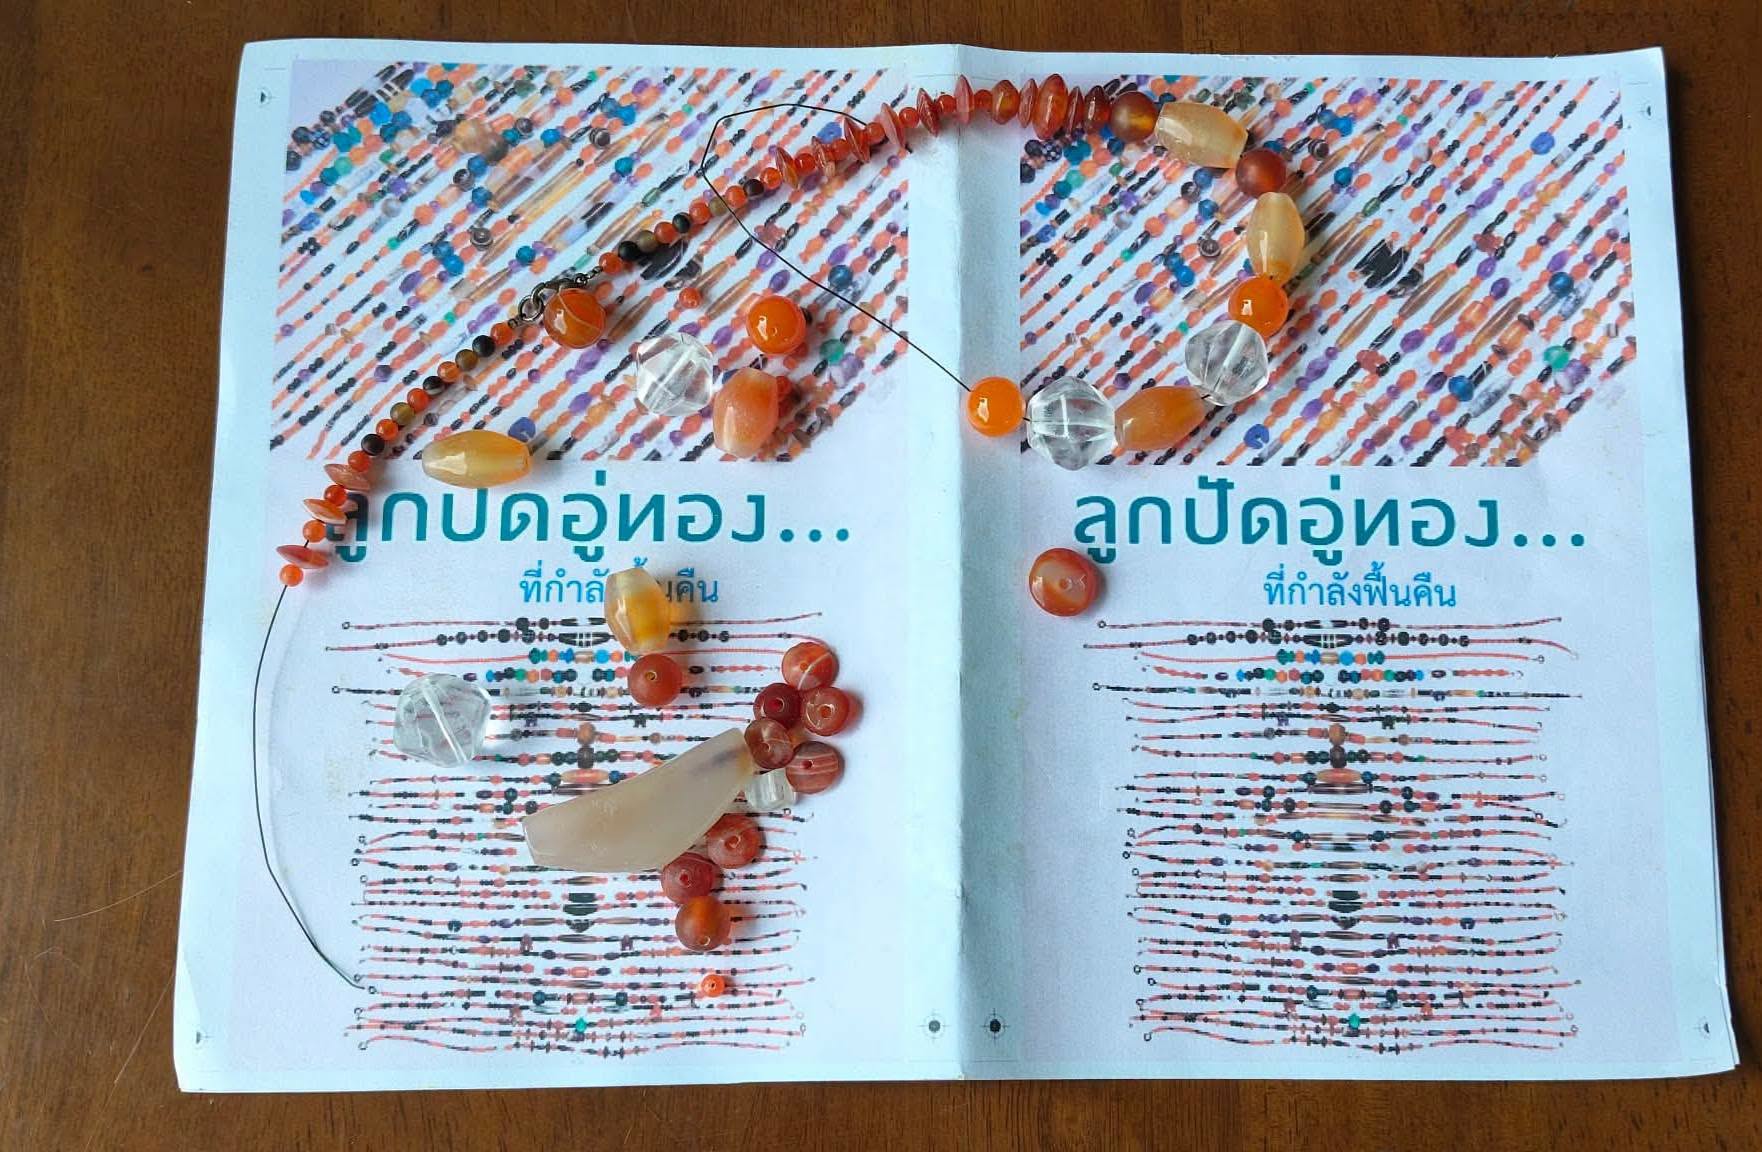 ลูกปัดอู่ทอง...
ที่กำลังฟื้นคืน
ลูกปัดอู่ทอง...
ที่กำลังฟื้นคืน